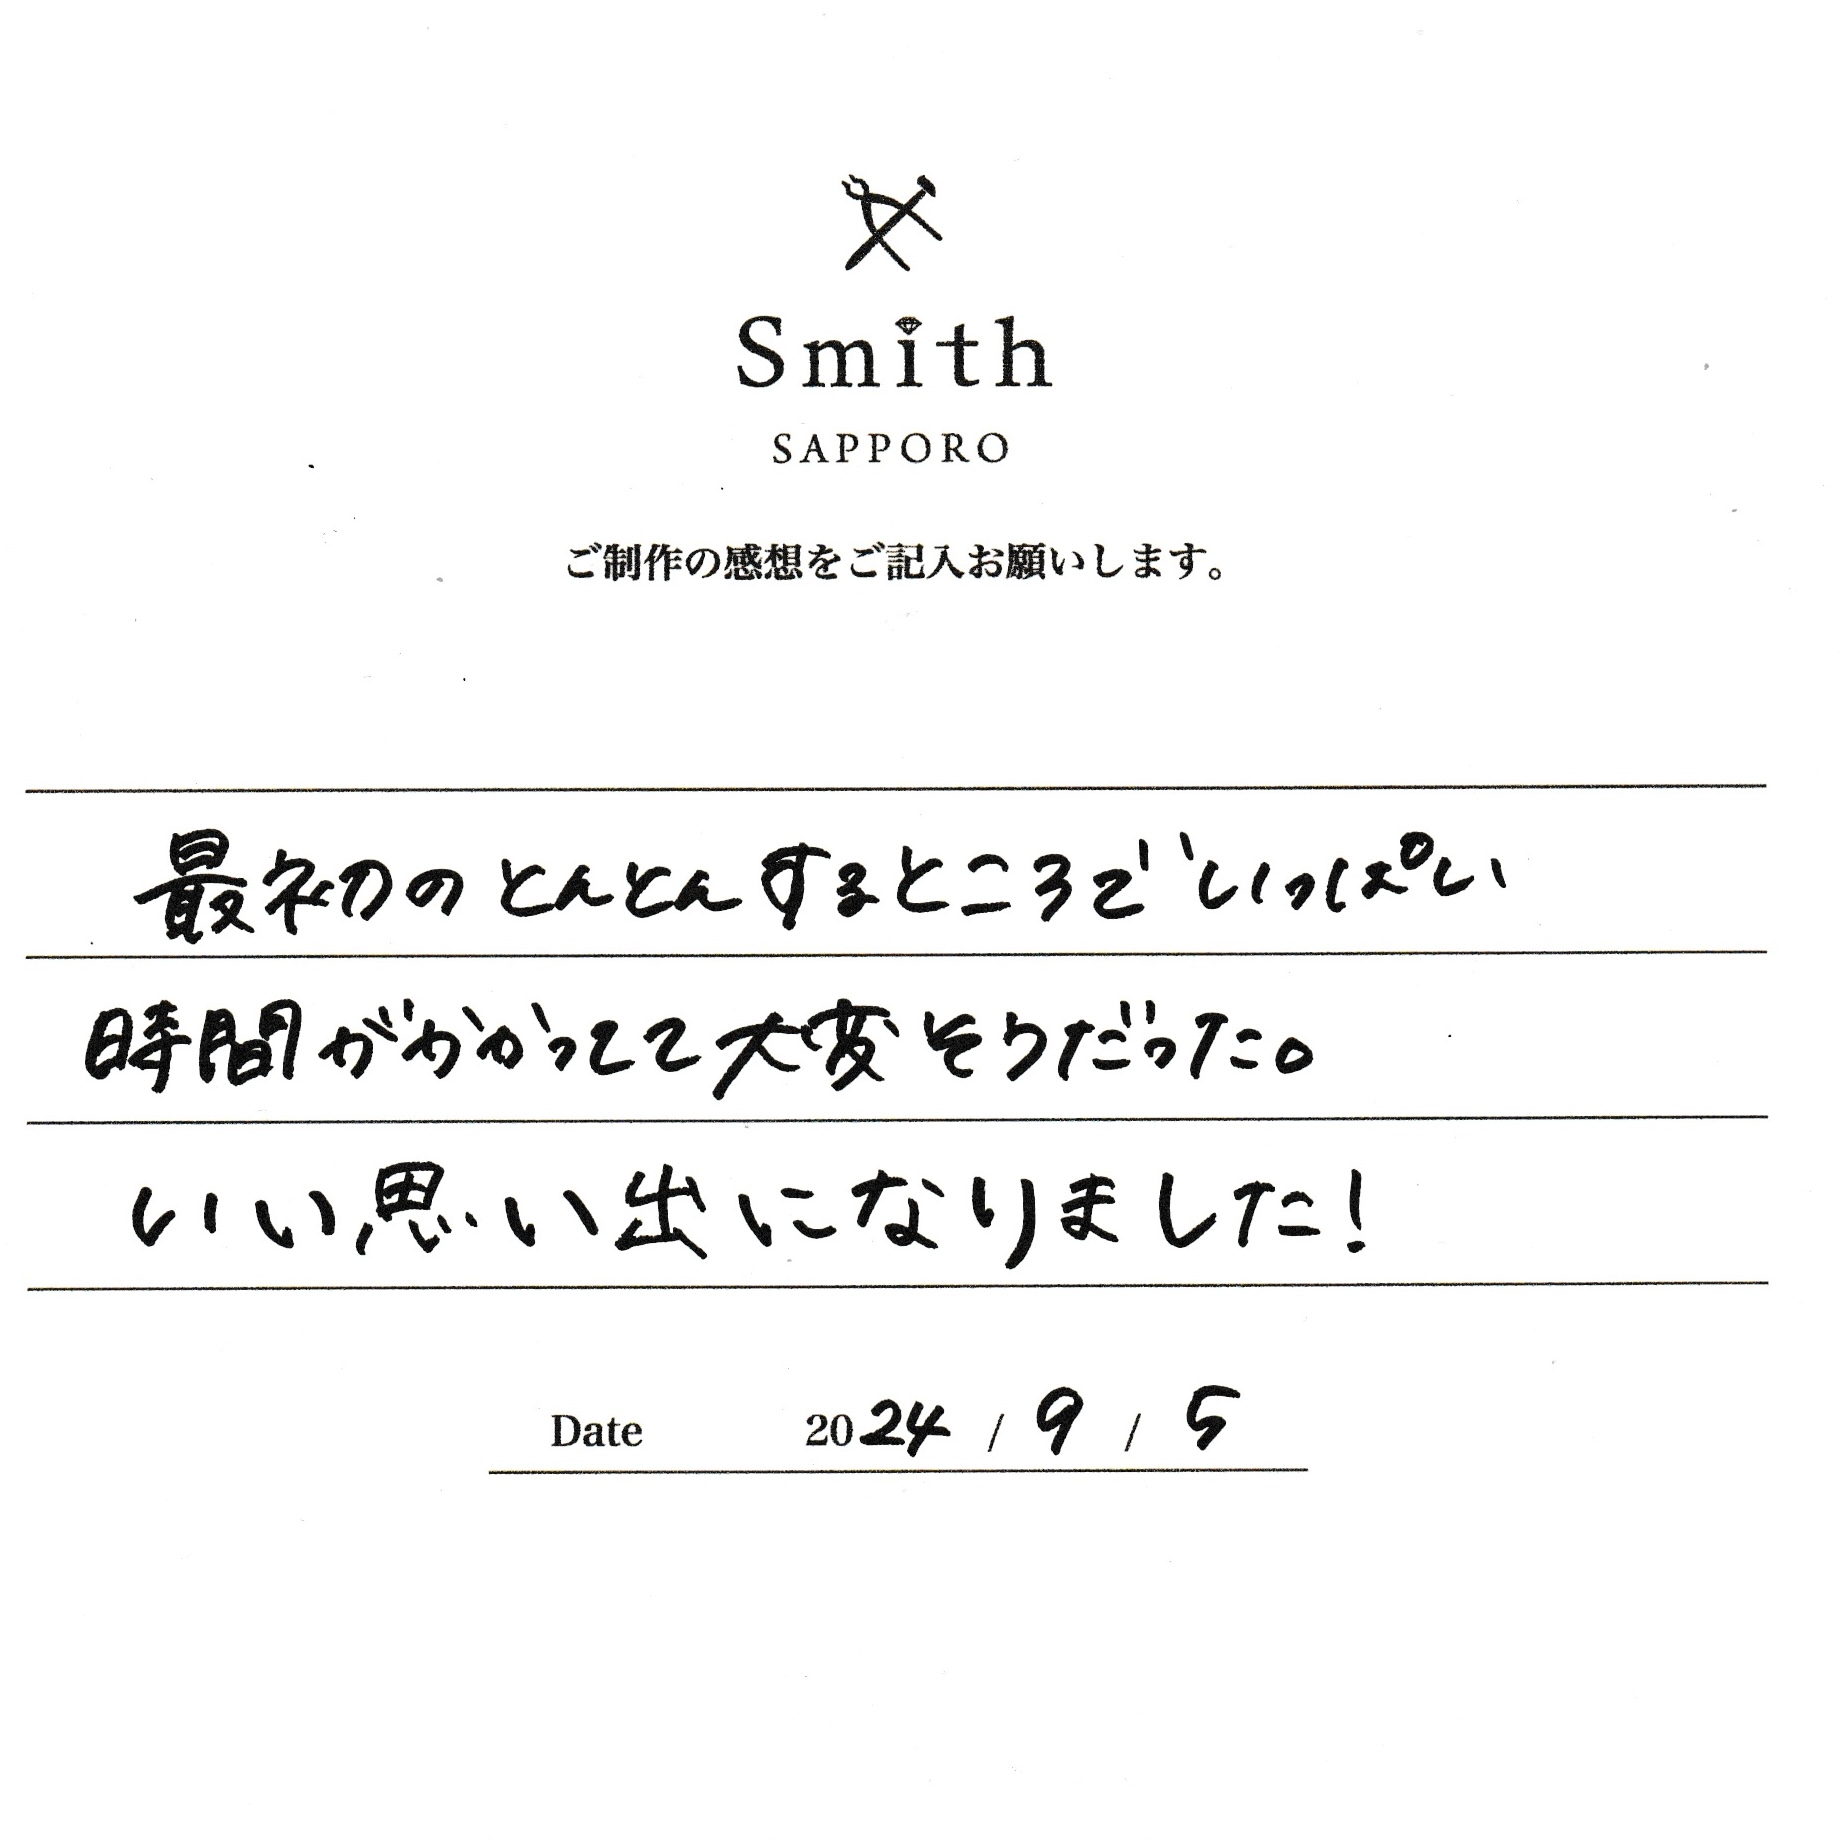 Smith
SAPPORO
ご制作の感想をご記入お願いします。
最初のとんとんするところでいっぱい
時間がかかってて大変そうだった。
いい思い出になりました！
Date 2024 / 9 / 5